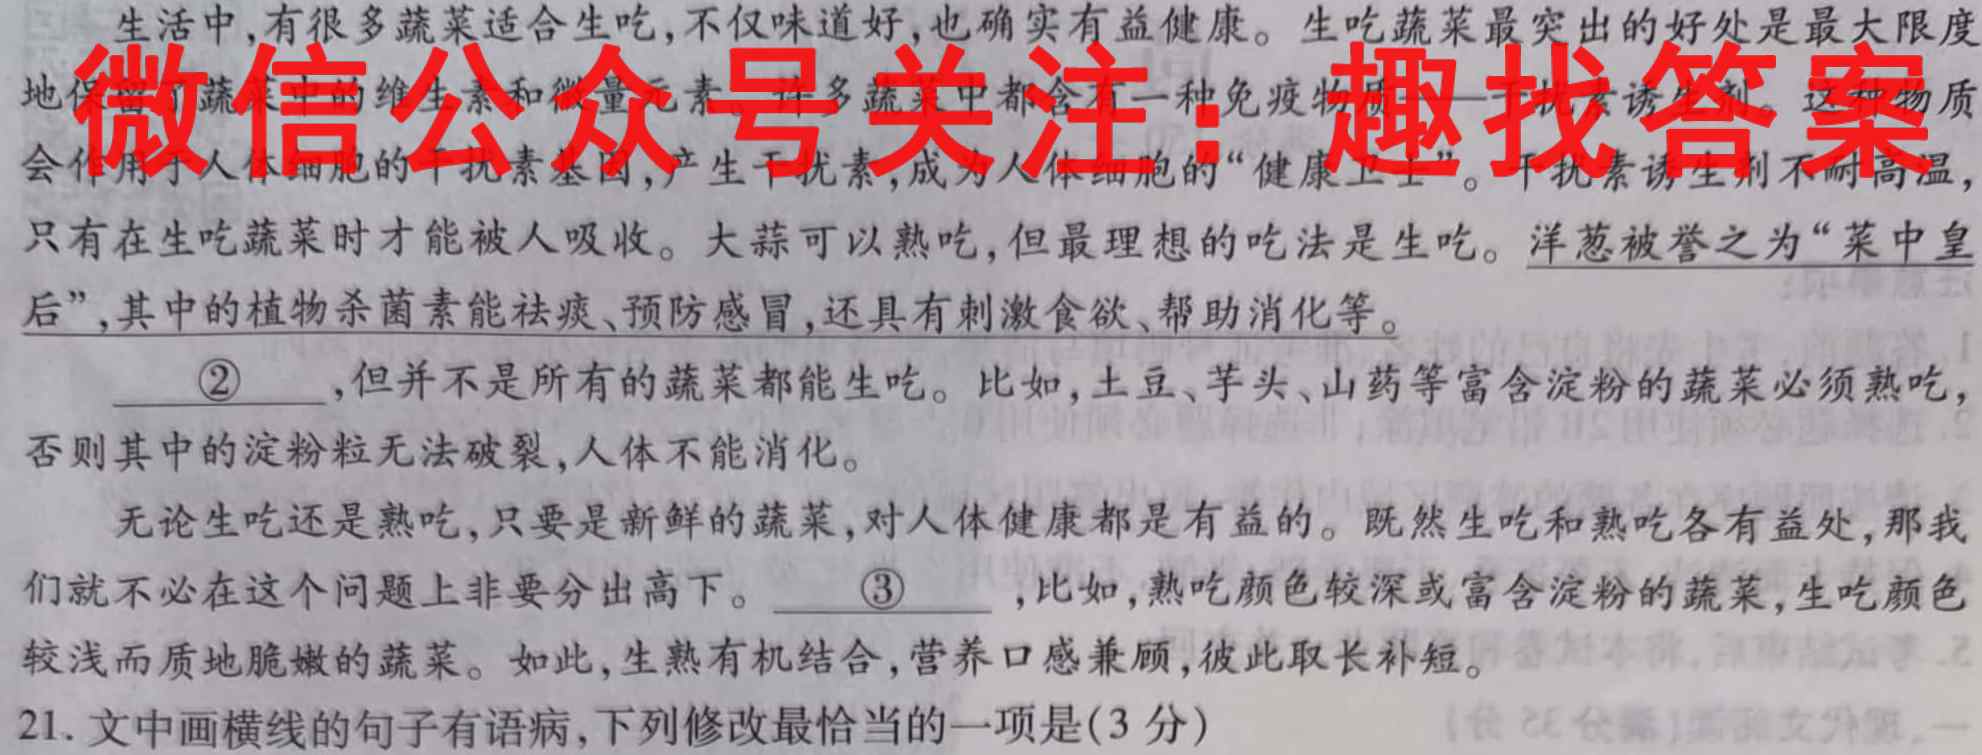 生活中,有很多蔬菜适合生吃,不仅味道好,也确实有益健康。生吃蔬菜最突出的好处是最大限度
地保留了蔬菜中的维生素和微量元素。许多蔬菜中都含有一种免疫物质——干扰素诱生剂。这种物质
微信公众号关注：趣找答案
会作用于人体细胞的干扰素基因,产生干扰素,成为人体细胞的“健康卫士”。干扰素诱生剂不耐高温,
只有在生吃蔬菜时才能被人吸收。大蒜可以熟吃,但最理想的吃法是生吃。洋葱被誉之为“菜中皇
后”,其中的植物杀菌素能祛痰、预防感冒,还具有刺激食欲、帮助消化等。
②,但并不是所有的蔬菜都能生吃。比如,土豆、芋头、山药等富含淀粉的蔬菜必须熟吃,
否则其中的淀粉粒无法破裂,人体不能消化。
无论生吃还是熟吃,只要是新鲜的蔬菜,对人体健康都是有益的。既然生吃和熟吃各有益处,那我
们就不必在这个问题上非要分出高下。③,比如,熟吃颜色较深或富含淀粉的蔬菜,生吃颜色
较浅而质地脆嫩的蔬菜。如此,生熟有机结合,营养口感兼顾,彼此取长补短。
21.文中画横线的句子有语病,下列修改最恰当的一项是(3分)